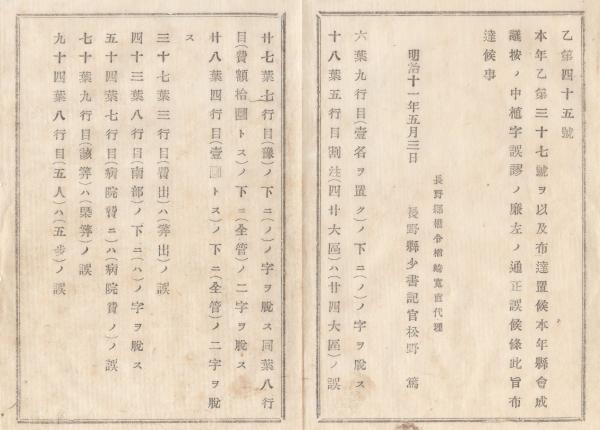 乙第四十五號
本年乙第三十七號ヲ以及布達置候本年縣會成
議按ノ中植字誤謬ノ廉左ノ通正誤候條此旨布
達候事
明治十一年五月三日
長野縣權令楢崎寬直代理
長野縣少書記官松野 篤
六葉九行目(壹名ヲ置ク)ノ下ニ(ノ)ノ字ヲ脫ス
十八葉五行目割注(四廿大區)ハ(廿四大區)ノ誤
廿七葉七行目(豫)ノ下ニ(ノ)ノ字ヲ脫ス同葉八行
目(費額拾圓トス)ノ下ニ(全管)ノ二字ヲ脫ス
廿八葉四行目(壹圓トス)ノ下ニ(全管)ノ二字ヲ脫
ス
三十七葉三行目(費出)ハ(筭出)ノ誤
四十三葉八行目(南部)ノ下ニ(ハ)ノ字ヲ脫ス
五十四葉七行目(病院費ニ)ハ(病院費ノ)ノ誤
七十葉九行目(該筭)ハ(槩筭)ノ誤
九十四葉八行目(五人)ハ(五步)ノ誤